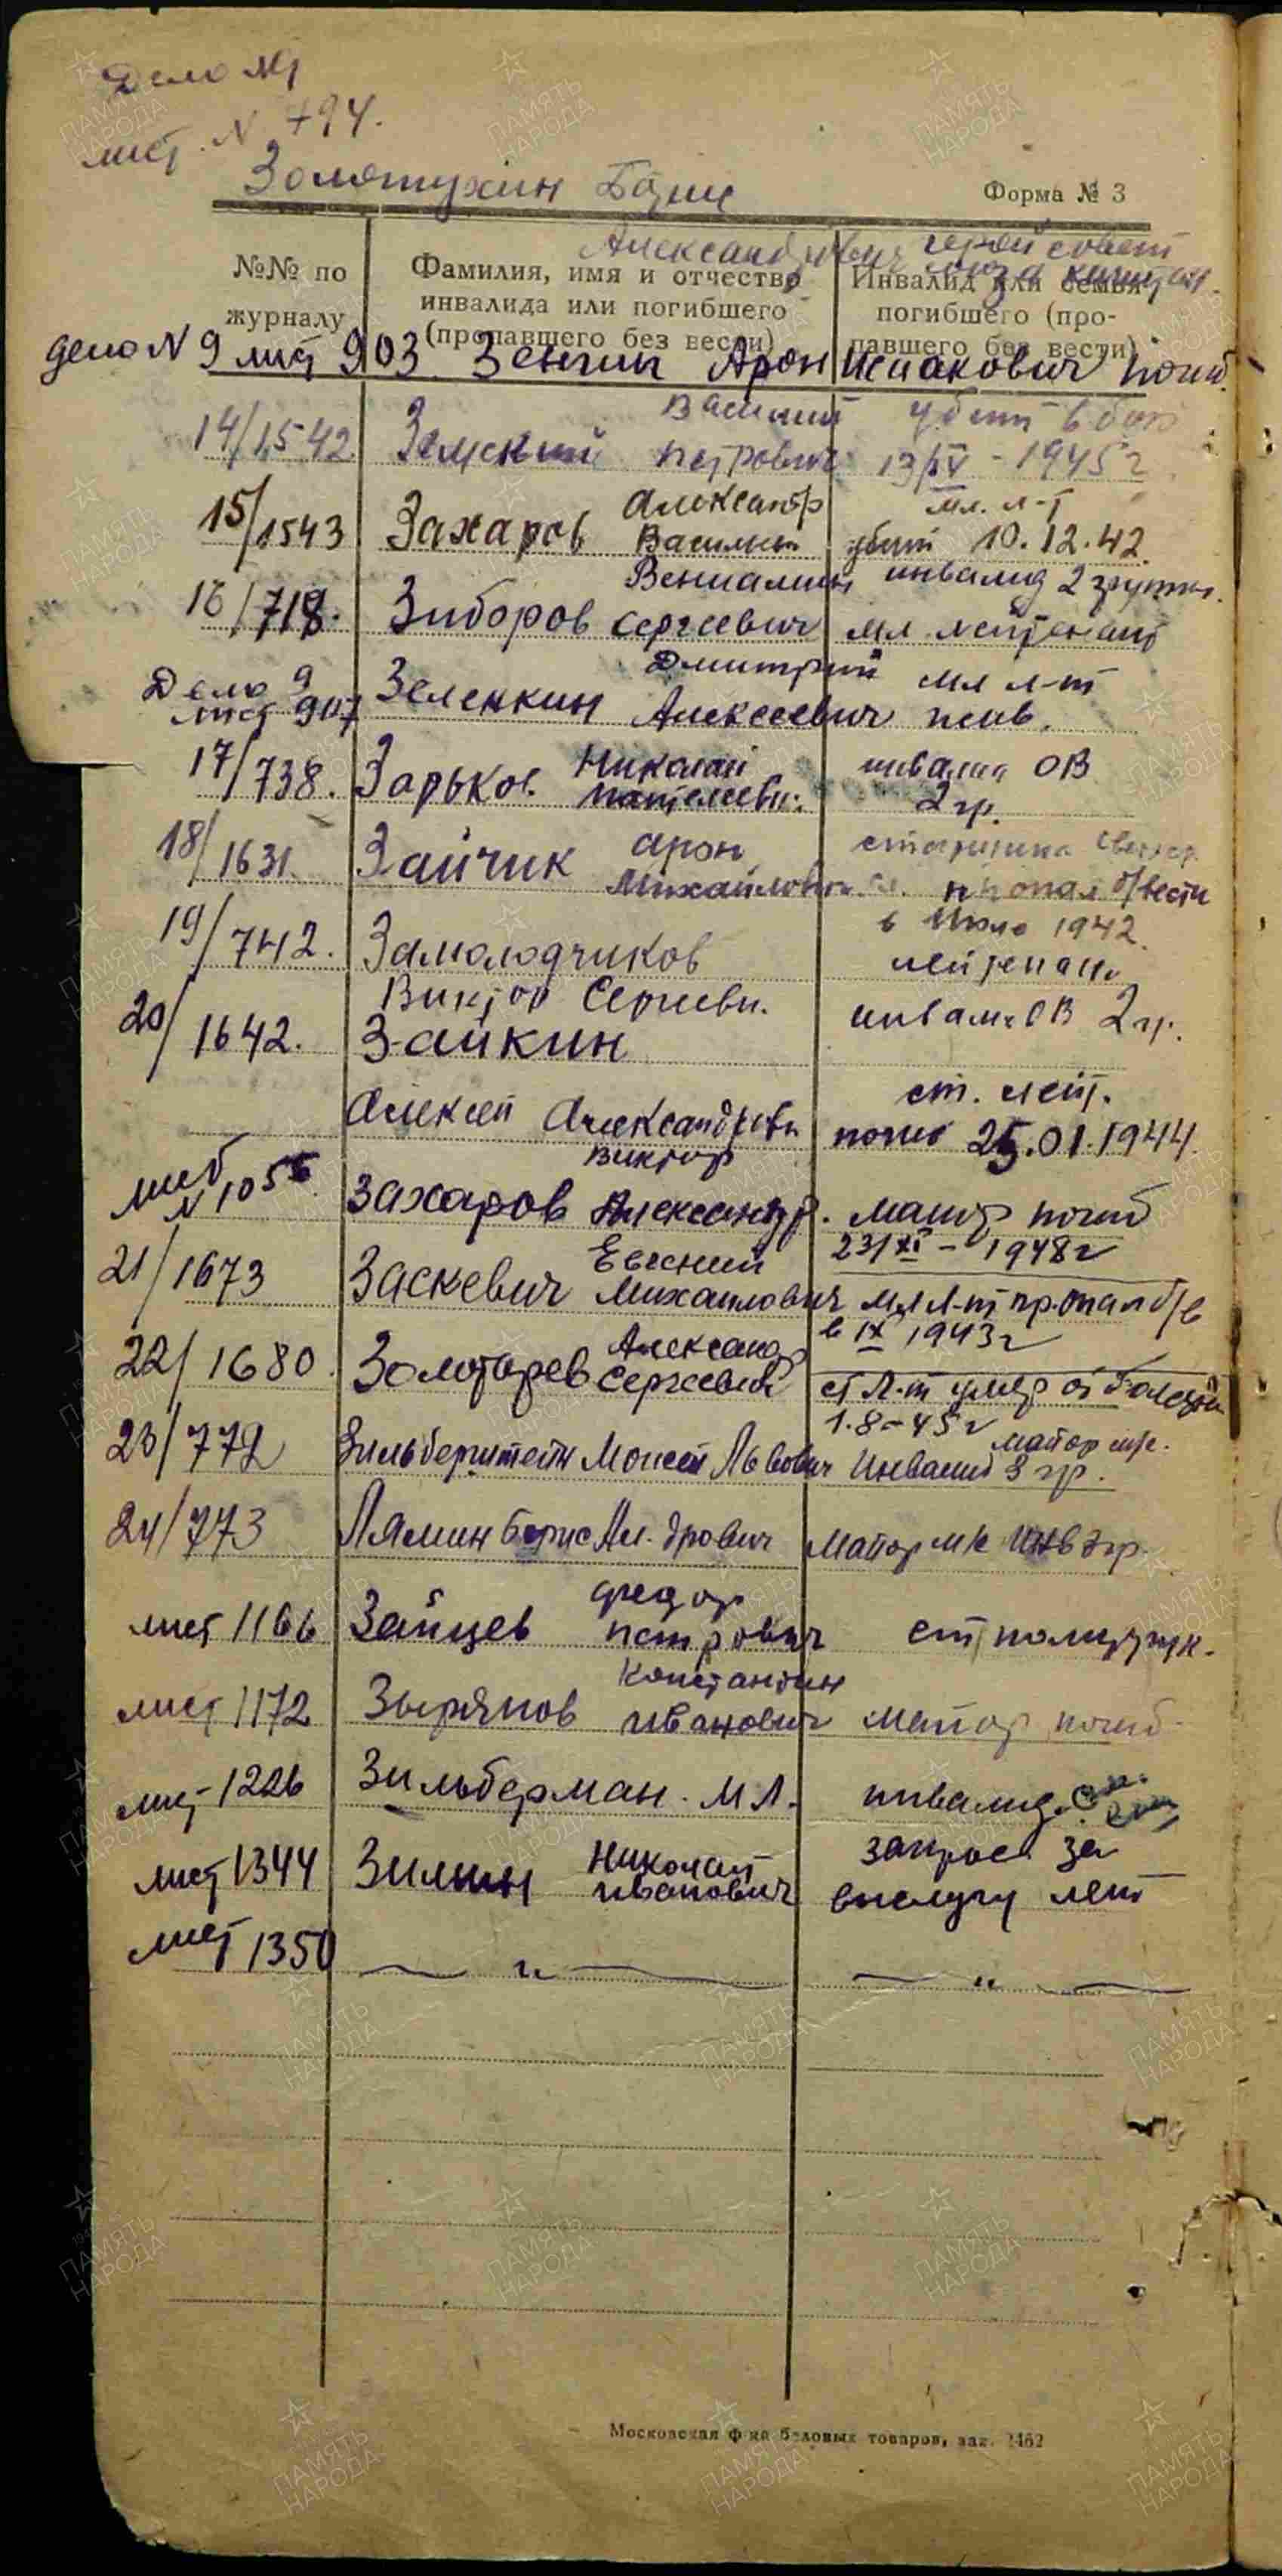 Дело №
лист. N 794.
Золотухин Борис
Форма № 3
Александрович герой совет
союза капитан.
№№ по журналу
Фамилия, имя и отчество инвалида или погибшего (пропавшего без вести)
Инвалид или семья погибшего (пропавшего без вести)
дело N 9 лист 903 Зенгин Арон Исаакович погиб.
Василий убит в бою
14/1542. Земский Петрович 13/IV - 1945 г
Александр мл. л-т
15/1543 Захаров Васильев убит 10.12.42
Вениамин инвалид 2 группы.
16/718. Зиборов Сергеевич мл. лейтенант
Дело 9 Дмитрий мл л-т
лист 907 Зеленкин Алексеевич
Николай инвалид ОВ
17/738. Зарьков. 2 гр.
18/1631. Зайчик Арон старшина
Михайлович пропал б/вести
в Июле 1942.
19/742. Замолодчиков лейтенант
Виктор Сергеевич. инвал. ОВ 2 гр.
20/1642. Зайкин
ст. лейт.
Алексей Александрович погиб 25.01.1944.
Виктор
лист N 1055 Захаров Александр. майор погиб
23/XI - 1948 г
Евгений
21/1673 Заскевич Михайлович мл Л-т пропал б/в
в IX 1943 г
Александр
22/1680. Золотарев Сергеевич ст Л-т умер от болезни
1.8-45 г
23/772 Зильберштейн Моисей Львович майор
Инвалид 3 гр.
24/773 Лямин Борис Ал-дрович майор инв гр.
Федор
лист 1166 Зайцев Петрович ст политрук.
Константин
лист 1172 Зырянов Иванович майор погиб
лист 1226 Зильберман. М Л. инвалид.
лист 1344 Зимин Николай Иванович запрос за
выслугу лет
лист 1350 — " — — " —
Московская ф-ка беловых товаров, зак. 2462
ПАМЯТЬ НАРОДА